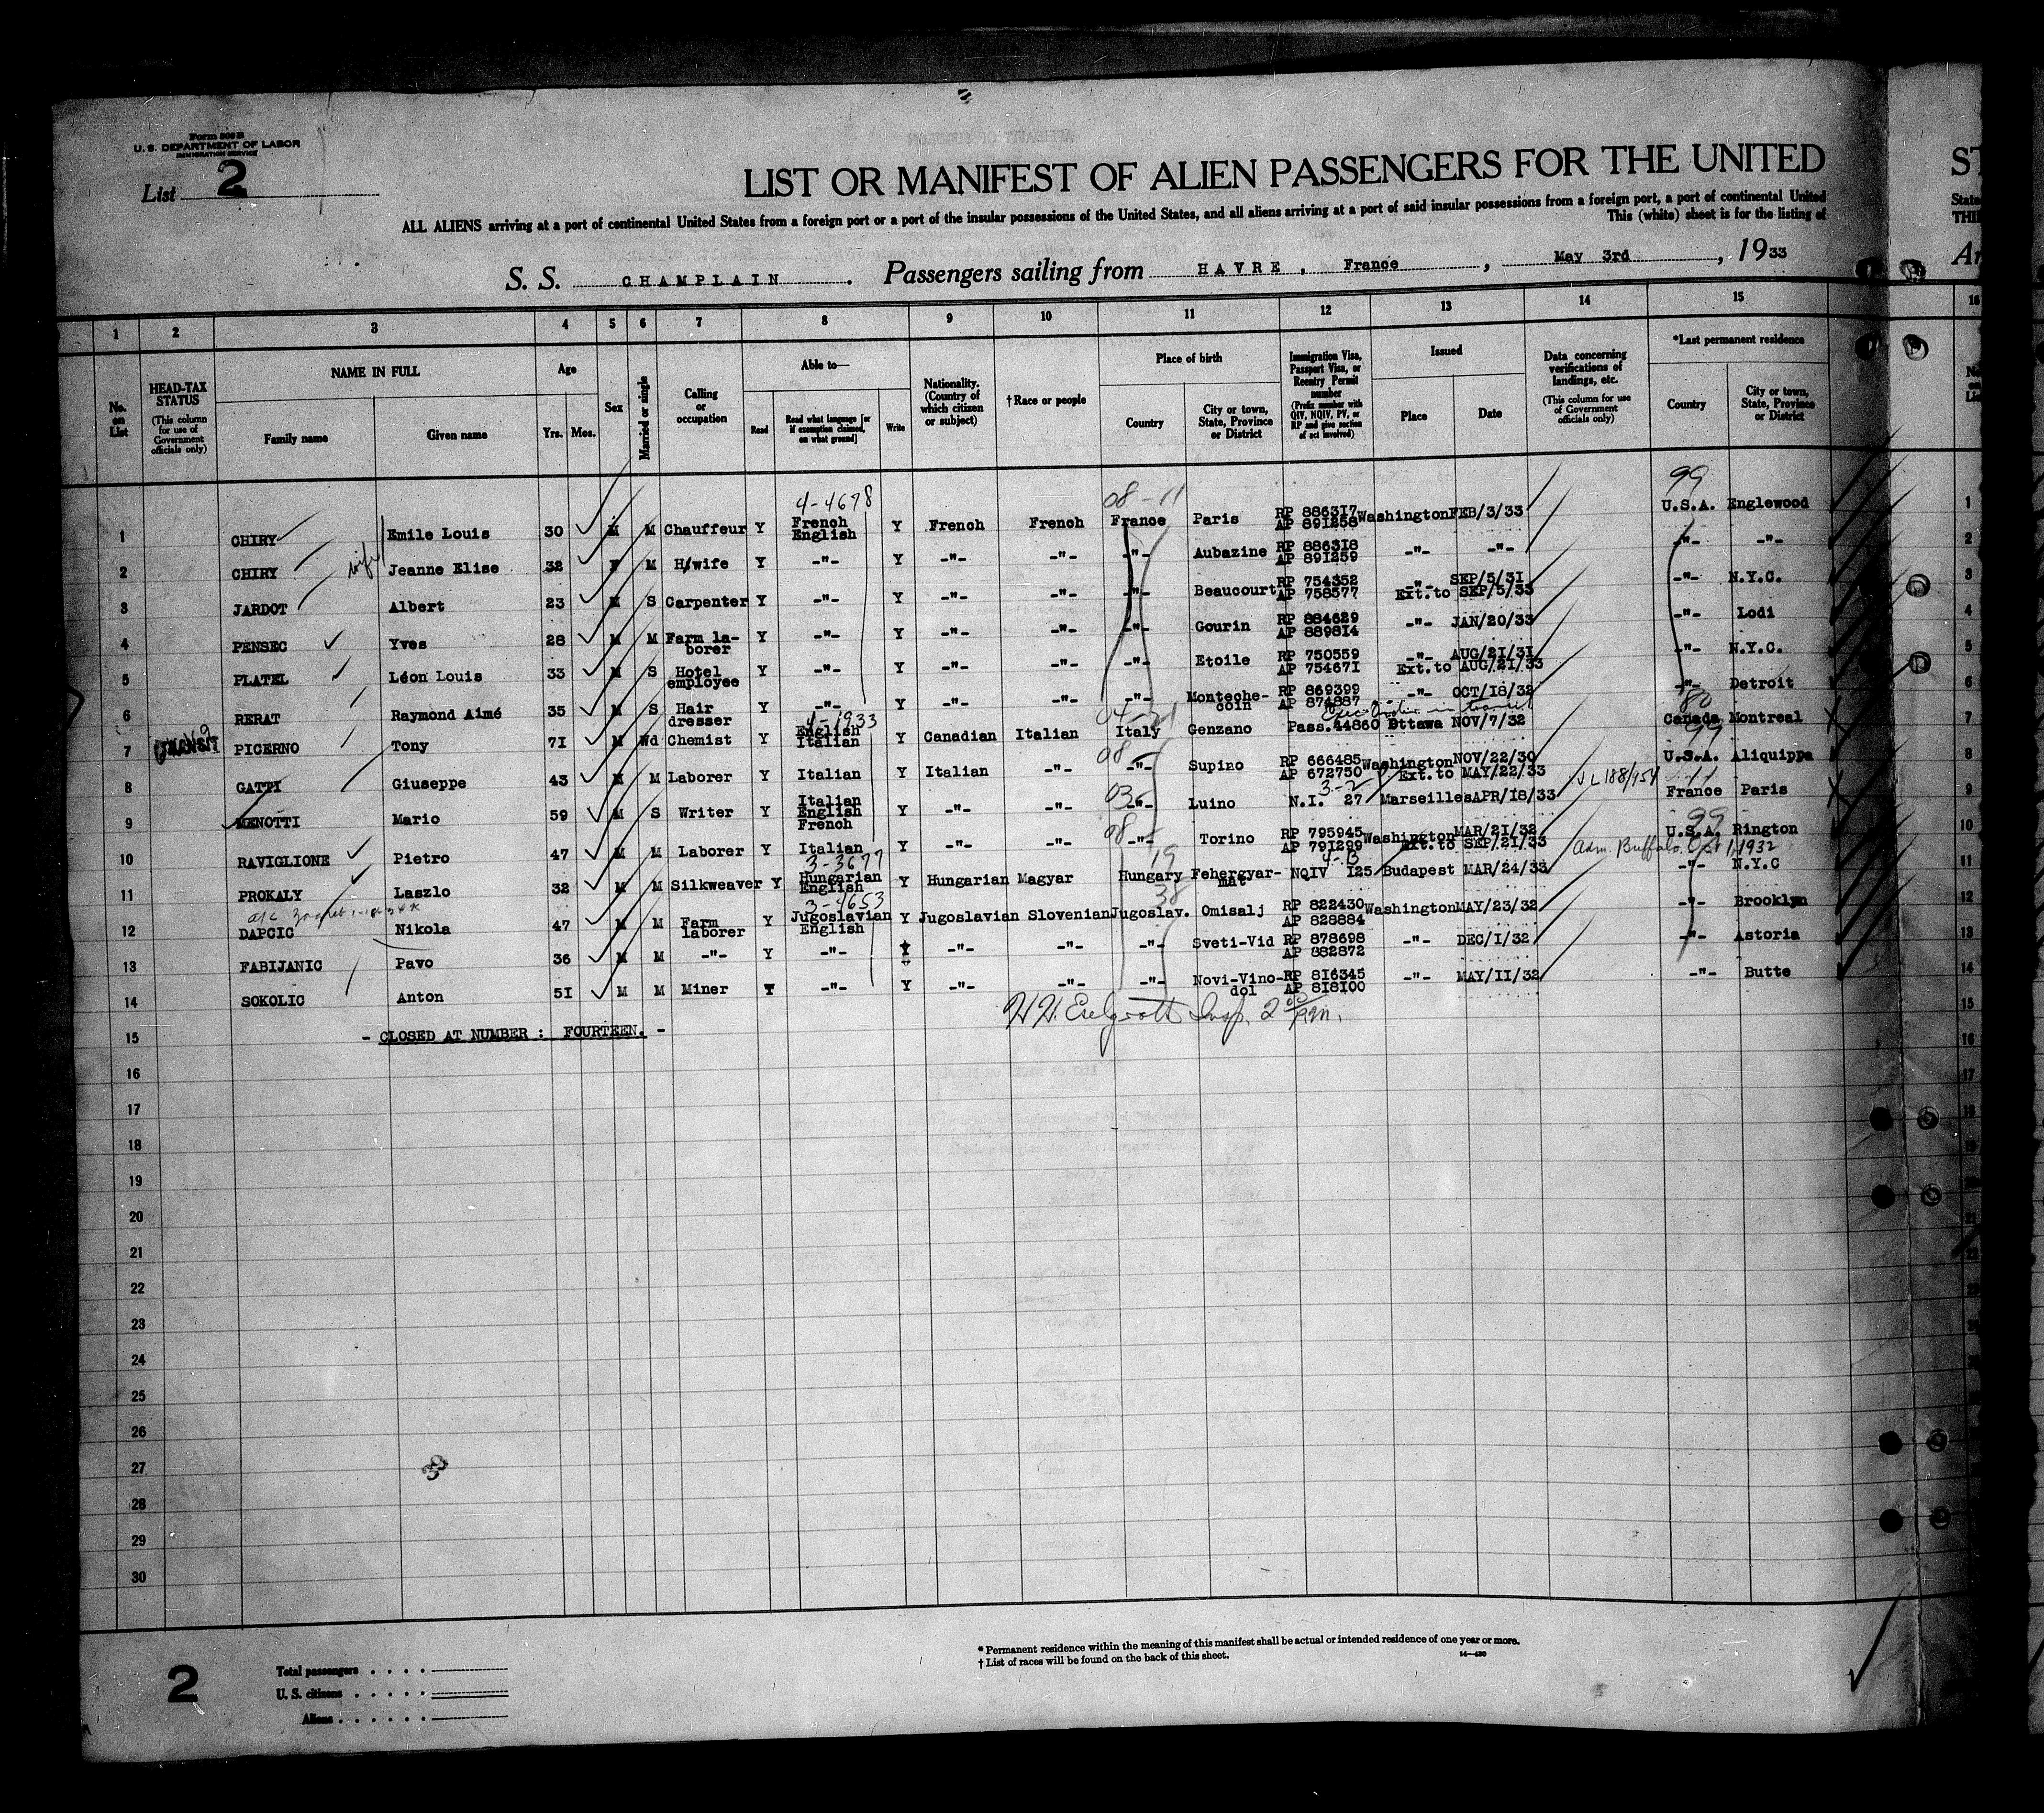 Form 500 B
U. S. DEPARTMENT OF LABOR
IMMIGRATION SERVICE
List 2
LIST OR MANIFEST OF ALIEN PASSENGERS FOR THE UNITED
ST
ALL ALIENS arriving at a port of continental United States from a foreign port or a port of the insular possessions of the United States, and all aliens arriving at a port of said insular possessions from a foreign port, a port of continental United
This (white) sheet is for the listing of
S. S. CHAMPLAIN. Passengers sailing from HAVRE, France, May 3rd, 1933
1 2 3 4 5 6 7 8 9 10 11 12 13 14 15 16
No. on List
HEAD-TAX STATUS (This column for use of Government officials only)
NAME IN FULL Family name Given name
Age Yrs. Mos.
Sex
Married or single
Calling or occupation
Able to— Read Read what language [or if exemption claimed, on what ground] Write
Nationality. (Country of which citizen or subject)
† Race or people
Place of birth Country City or town, State, Province or District
Immigration Visa, Passport Visa, or Reentry Permit number (Prefix number with QIV, NQIV, PV, or RP and give section of act involved)
Issued Place Date
Data concerning verifications of landings, etc. (This column for use of Government officials only)
*Last permanent residence Country City or town, State, Province or District
4-4678 08-11 99
1 CHIRY Emile Louis 30 M M Chauffeur Y French English Y French French France Paris RP 886317 AP 891258 Washington FEB/3/33 U.S.A. Englewood 1
2 CHIRY wife Jeanne Elise 32 F M H/wife Y -"- Y -"- -"- -"- Aubazine RP 886318 AP 891259 -"- -"- -"- -"- 2
3 JARDOT Albert 23 M S Carpenter Y -"- Y -"- -"- -"- Beaucourt RP 754352 AP 758577 -"- SEP/5/31 Ext. to SEP/5/33 -"- N.Y.C. 3
4 PENSEC Yves 28 M M Farm la-borer Y -"- Y -"- -"- -"- Gourin RP 884629 AP 889814 -"- JAN/20/33 -"- Lodi 4
5 PLATEL Léon Louis 33 M S Hotel employee Y -"- Y -"- -"- -"- Etoile RP 750559 AP 754671 -"- AUG/21/31 Ext. to AUG/21/33 -"- N.Y.C. 5
6 RERAT Raymond Aimé 35 M S Hair dresser Y -"- Y -"- -"- -"- Monteche-coin RP 869399 AP 874887 -"- OCT/18/32 -"- Detroit 6
4-1933 in transit 80
7 TRANSIT PICERNO Tony 71 M Wd Chemist Y English Italian Y Canadian Italian Italy Genzano Pass.44860 Ottawa NOV/7/32 Canada Montreal 7
08 99
8 GATTI Giuseppe 43 M M Laborer Y Italian Y Italian -"- -"- Supino RP 666485 AP 672750 Washington NOV/22/30 Ext. to MAY/22/33 U.S.A. Aliquippa 8
3-2
9 MENOTTI Mario 59 M S Writer Y Italian English French Y -"- -"- -"- Luino N.I. 27 Marseilles APR/18/33 France Paris 9
08 99
10 RAVIGLIONE Pietro 47 M M Laborer Y Italian Y -"- -"- -"- Torino RP 795945 AP 791299 Washington MAR/21/32 Ext. to SEP/21/33 U.S.A. Rington 10
3-3677 19 4-B Adm. Buffalo. Oct 1, 1932
11 PROKALY Laszlo 32 M M Silkweaver Y Hungarian English Y Hungarian Magyar Hungary Fehergyar-mat NQIV 125 Budapest MAR/24/33 -"- N.Y.C 11
3-4653 38
12 DAPCIC Nikola 47 M M Farm laborer Y Jugoslavian English Y Jugoslavian Slovenian Jugoslav. Omisalj RP 822430 AP 828884 Washington MAY/23/32 -"- Brooklyn 12
13 FABIJANIC Pavo 36 M M -"- Y -"- Y -"- -"- -"- Sveti-Vid RP 878698 AP 882872 -"- DEC/1/32 -"- Astoria 13
14 SOKOLIC Anton 51 M M Miner Y -"- Y -"- -"- -"- Novi-Vino-dol RP 816345 AP 818100 -"- MAY/11/32 -"- Butte 14
15 - CLOSED AT NUMBER : FOURTEEN. - 15
16
17
18
19
20
21
22
23
24
25
26
27
28
29
30
* Permanent residence within the meaning of this manifest shall be actual or intended residence of one year or more.
† List of races will be found on the back of this sheet.
14—430
2
Total passengers
U. S. citizens
Aliens